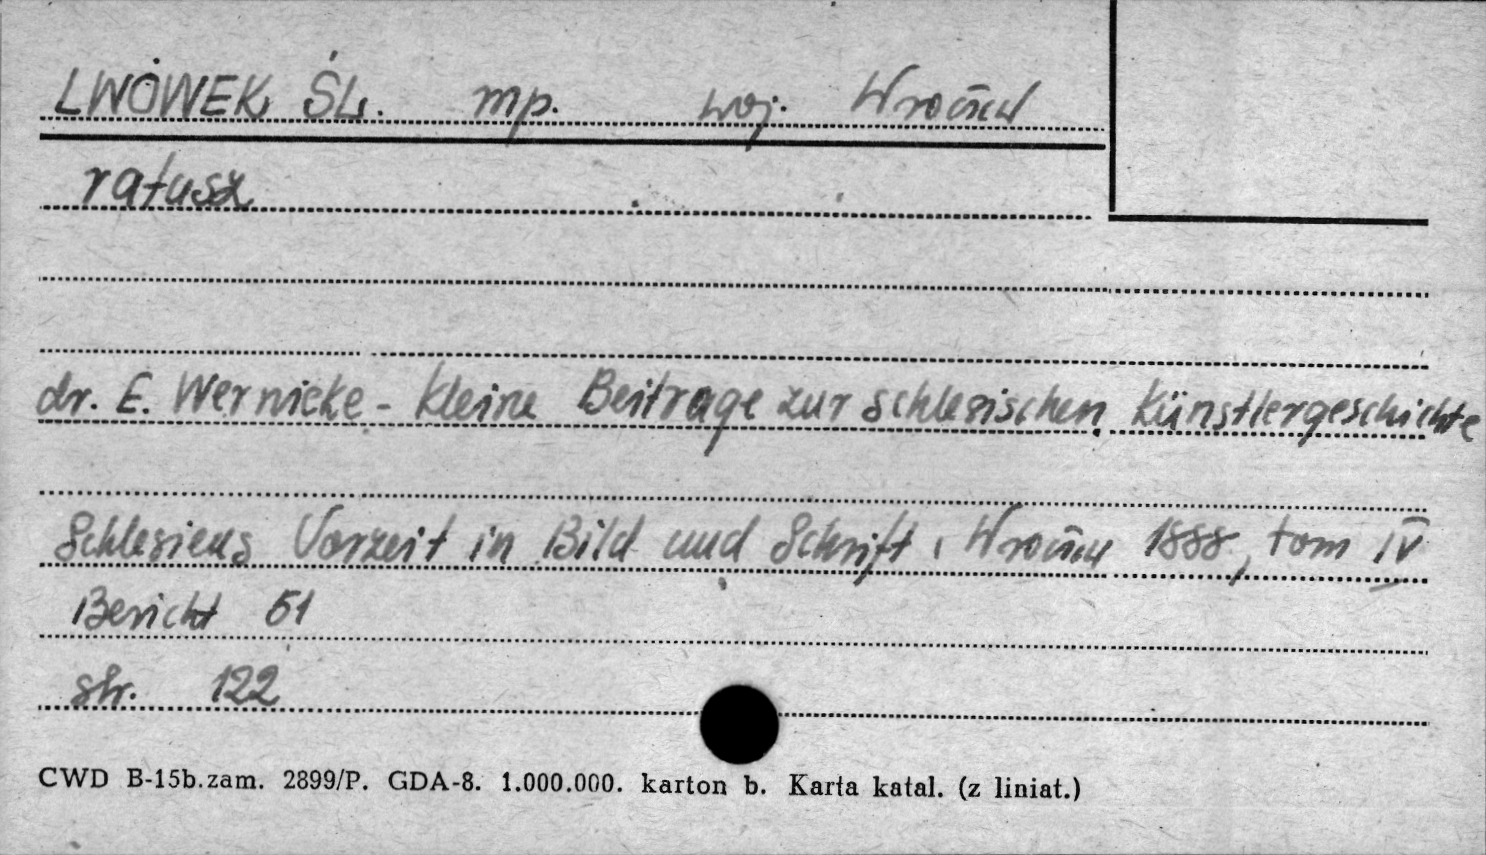 LWÓWEK ŚL. mp. woj. Wrocław
ratusz
dr. E. Wernicke - Kleine Beitrage zur schlesischen Künstlergeschichte
Schlesiens Vorzeit in Bild und Schrift, Wrocław 1888, tom IV
Bericht 51
str. 122
CWD B-15b.zam. 2899/P. GDA-8. 1.000.000. karton b. Karta katal. (z liniat.)